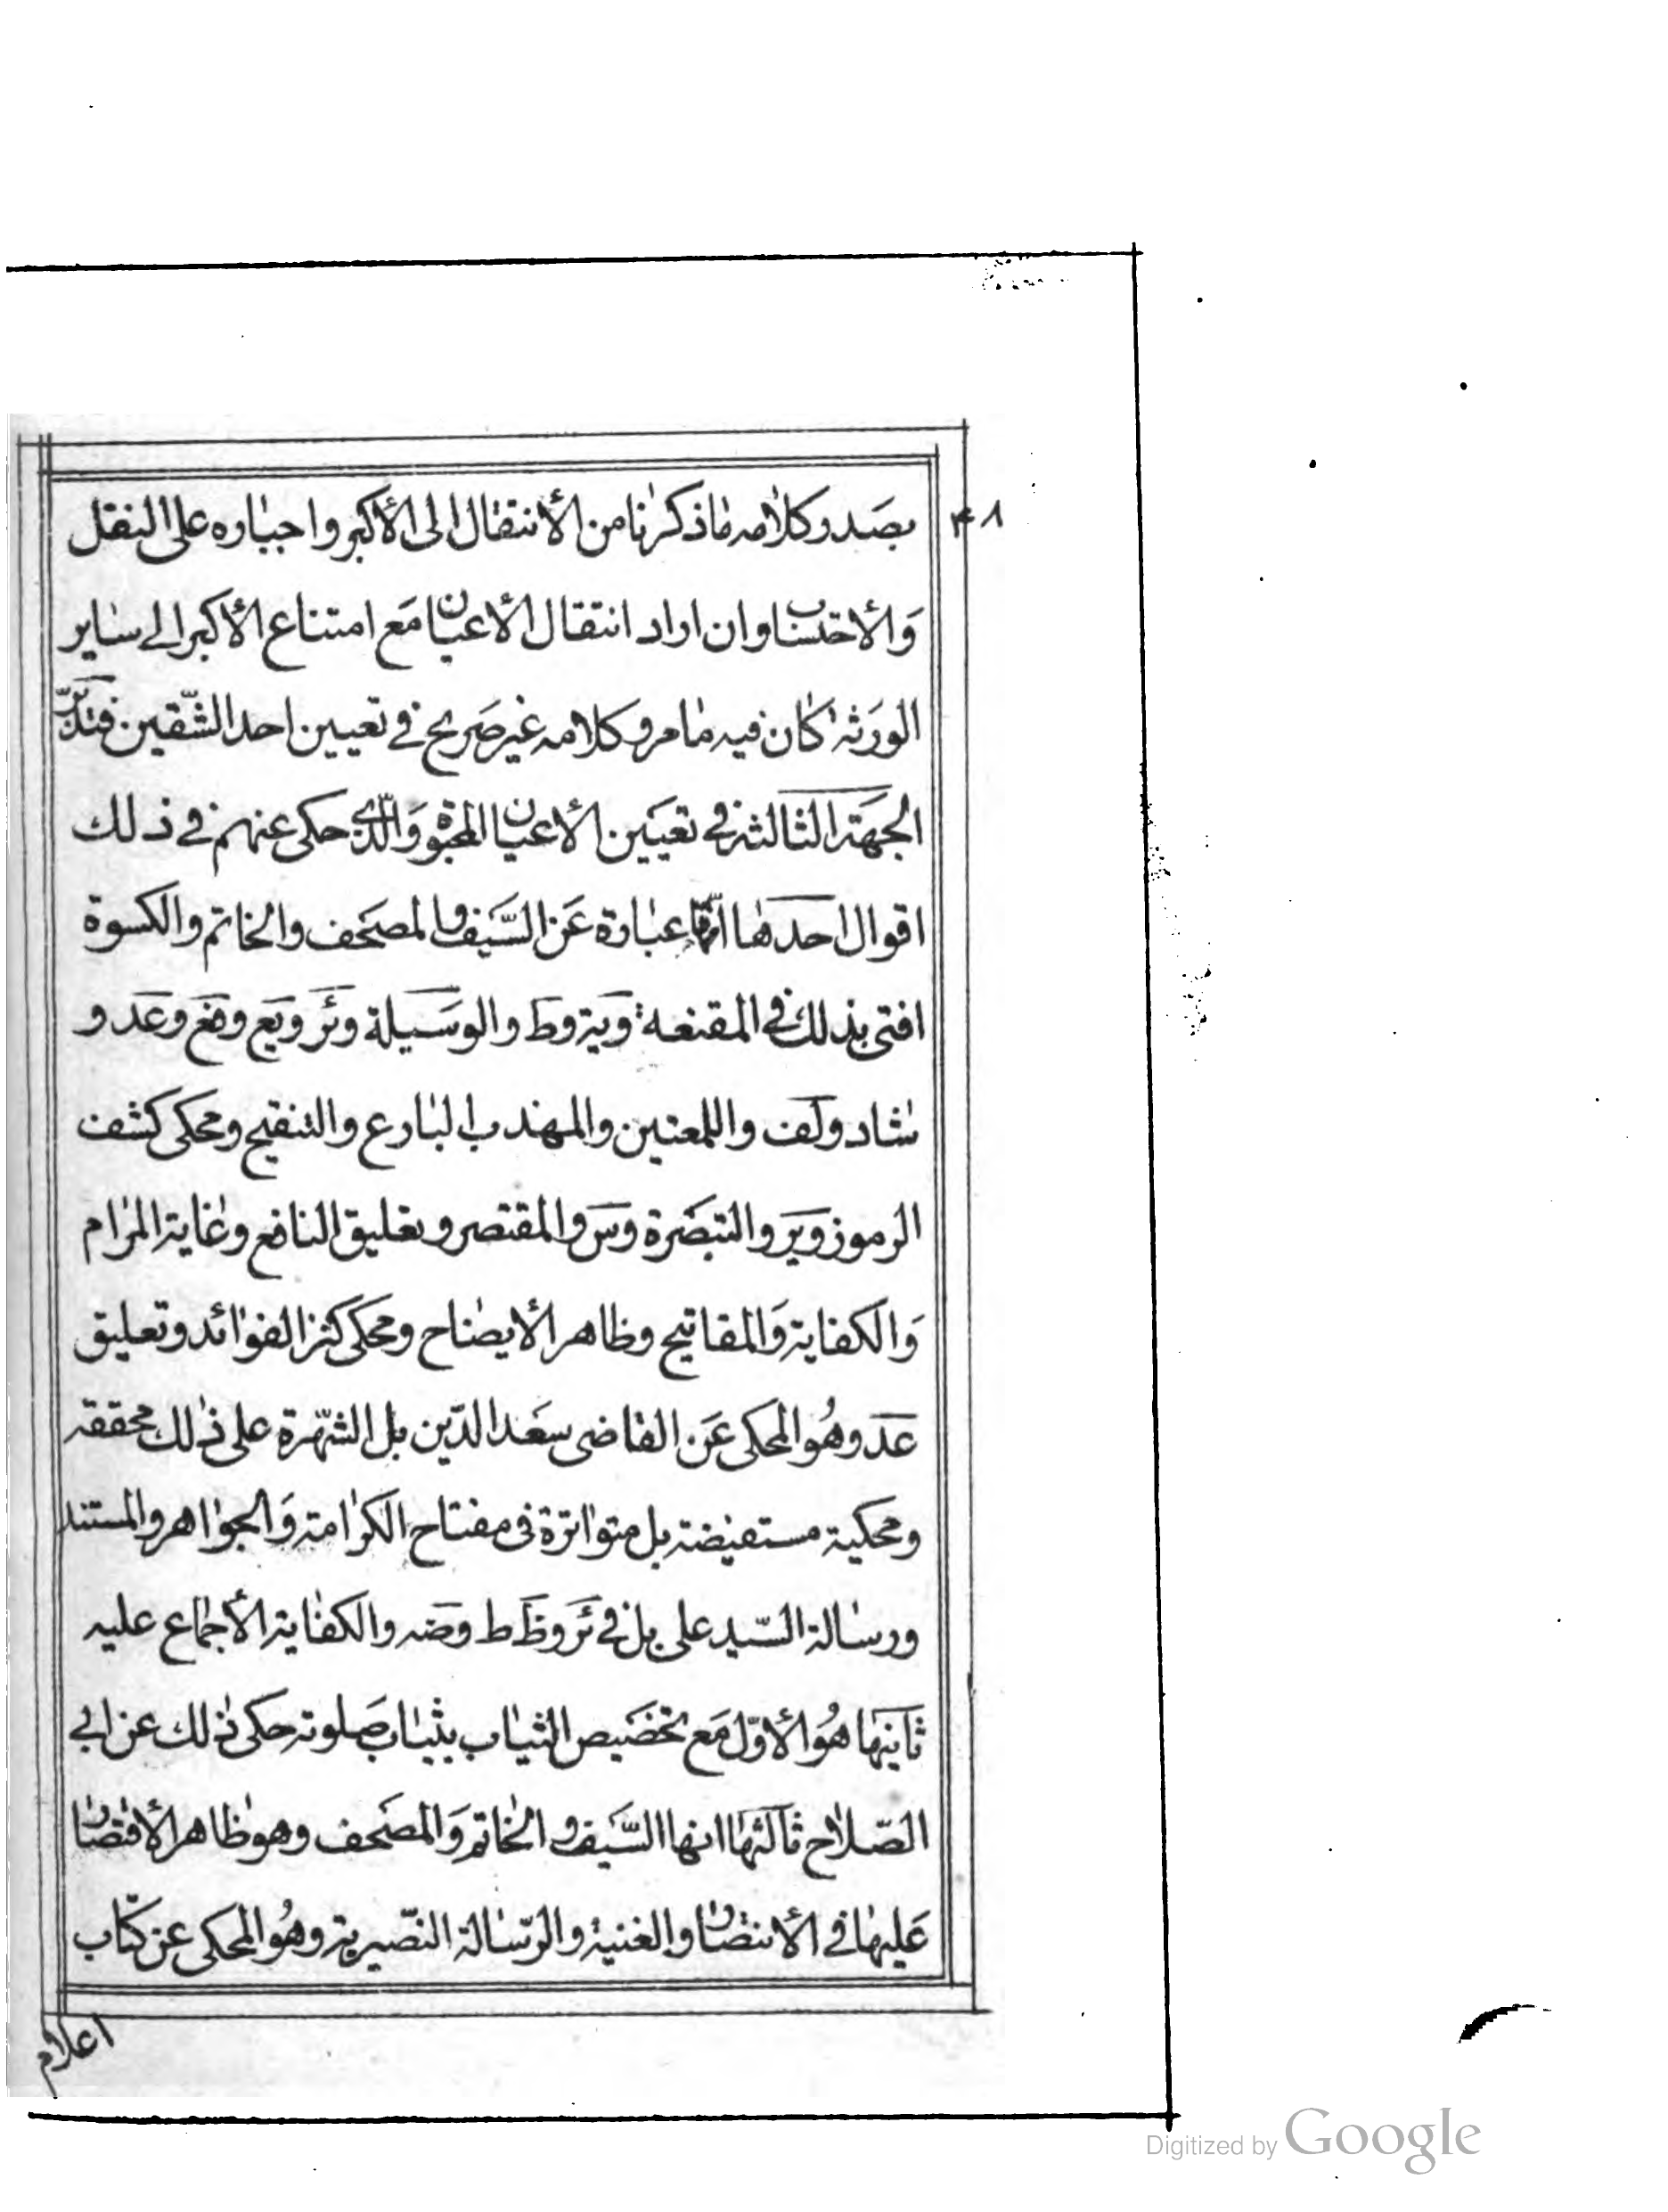 ۴۸
بصدد وكلامه ماذكرنا من الأنتقال الى الأكبر واجباره على النقل
وَالأحتساب وان اراد انتقال الأعيان مَع امتناع الأكبر الى ساير
الورَثه كان فيه مامر وكلامه غير صَريح في تعيين احد الشّقين فتدبّر
الجهَة الثالثة في تعيَين الأعيان المحبوة وَالّذى حكى عنهم في ذلك
اقوال احدَها انّها عبارة عَن السَّيف والمصحَف والخاتم والكسوة
افتى بذلك في المقنعه ويَة وط والوسَيلة وئَر ويَع وفَع وعَد و
شاد ولَف واللمعتين والمهذب البارع والتنقيح ومحكى كشف
الرموز ويَر والتبصَرة وسَ والمقتصر وتعليق النافع وغاية المرام
وَالكفاية وَالمفاتيح وظاهر الأيضاح ومحكى كنز الفوائد وتعليق
عَد وهُو المحكى عَن القاضى سعَد الدّين بل الشّهرة على ذلك محققه
ومحكية مستفيضة بل متواترة فى مفتاح الكرامة وَالجواهر والمستند
ورسالة السّيد على بل في ئَر وظَ ط وضَه والكفاية الأجماع عليه
ثانيها هُو الأوّل مَع تخصَيص الثياب بثياب صَلوته حكى ذلك عن ابي
الصّلاح ثالثها انها السَّيف والخاتم وَالمصَحف وهو ظاهر الأقتصار
عَليها في الأنتصار والغنية والرّسالة النّصيرية وهُو المحكى عن كتاب
اعلام
Digitized by Google